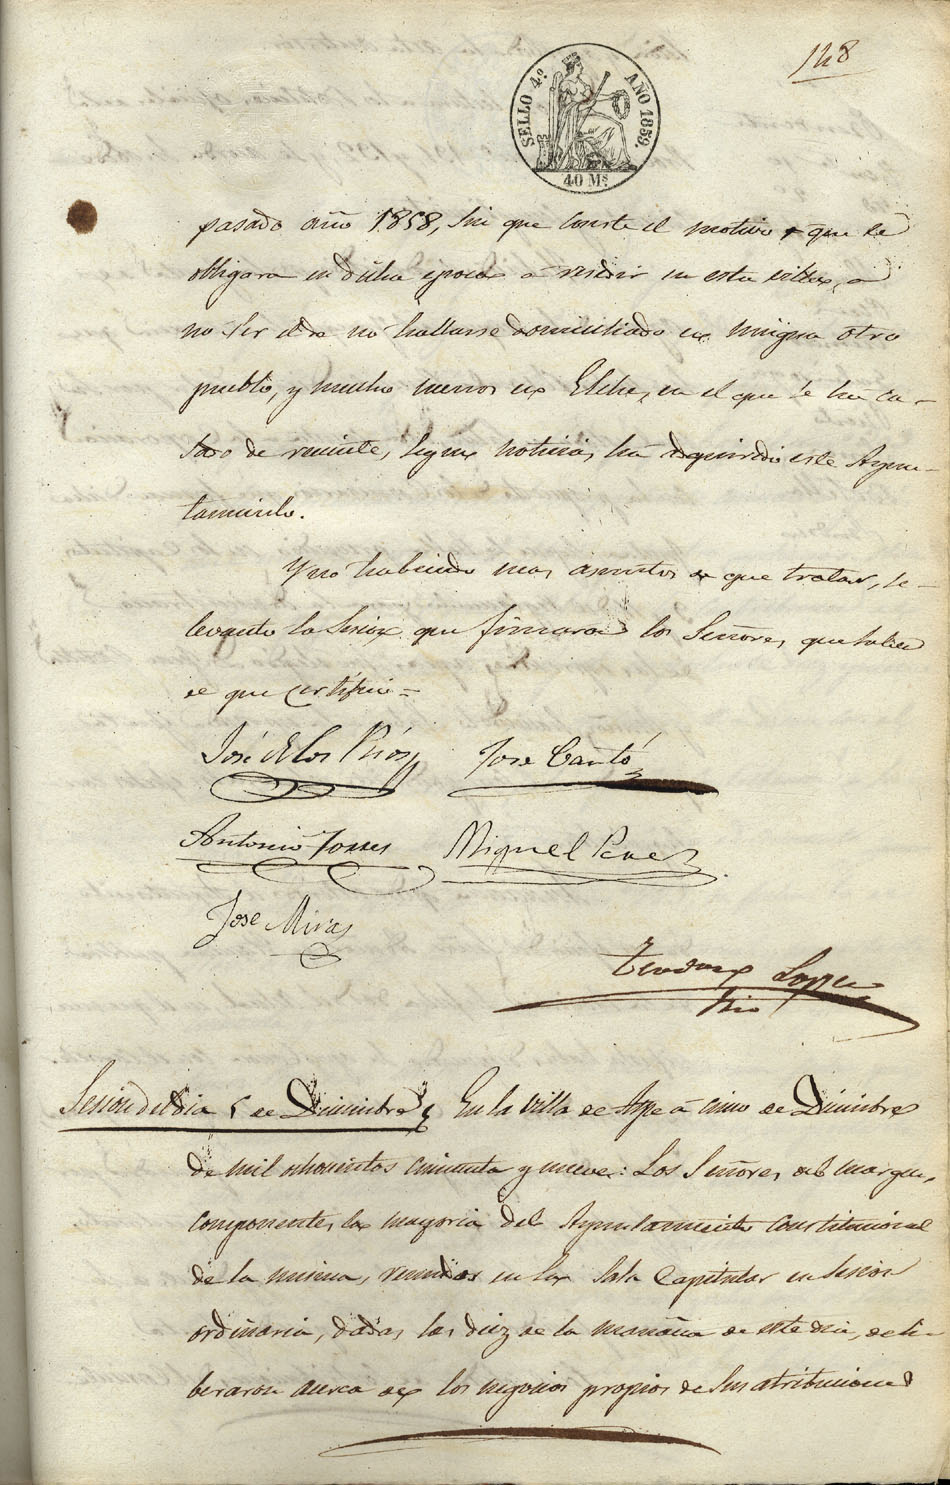 148
SELLO 4º AÑO 1859.
40 Ms
pasado año 1858, sin que conste el motivo que le
obligara en dicha época a residir en esta villa, a
no ser el de no hallarse domiciliado en ninguna otro
pueblo, y mucho menos en Elche, en el que se ha ca-
sado de reciente, segun noticias, ha adquirido este Ayun-
tamiento.
Y no habiendo mas asuntos de que tratar, se
levanto la Sesion que firmaran los Señores, que saben
de que certifico =
José de los Rios
Jose Cantó
Antonio Torres
Miguel Perez
Jose Miras
Lopez
Srio
Sesion del dia 5 de Diciembre
En la villa de Aspe a cinco de Diciembre
de mil ochocientos cincuenta y nueve: Los Señores, al margen,
componentes la mayoria del Ayuntamiento constitucional
de la misma, reunidos en la Sala Capitular en sesion
ordinaria, dadas las diez de la mañana de este dia, deli-
beraron acerca de los negocios propios de sus atribuciones